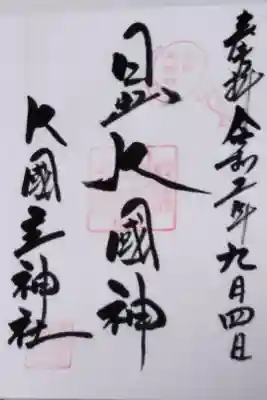 奉拝 令和二年九月四日
日出大國神
大國主神社